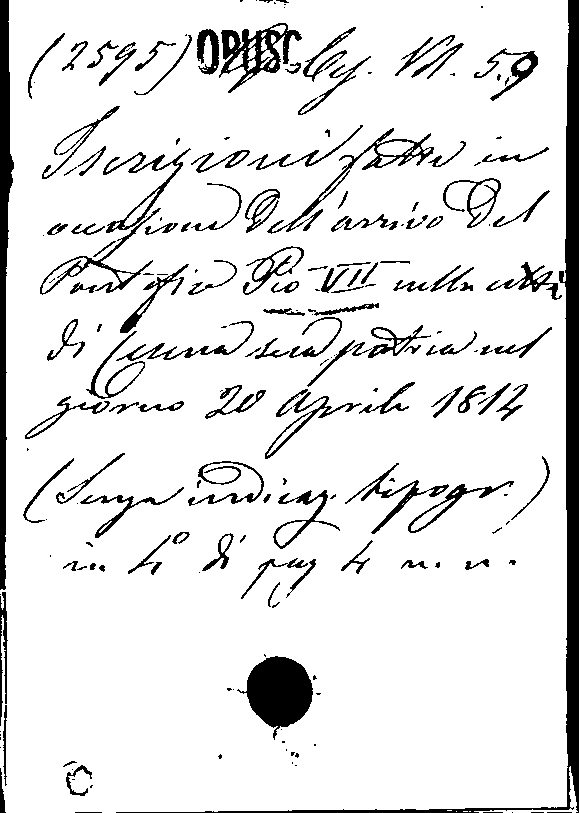 (2595) OPUSC. Cy. VII. 59
Iscrizioni fatte in
occasione dell'arrivo del
Pontefice Pio VII nella città
di Cesena sua patria nel
giorno 20 Aprile 1814
(Senza indicaz. tipogr.)
in 4° di pag 4 n. n.